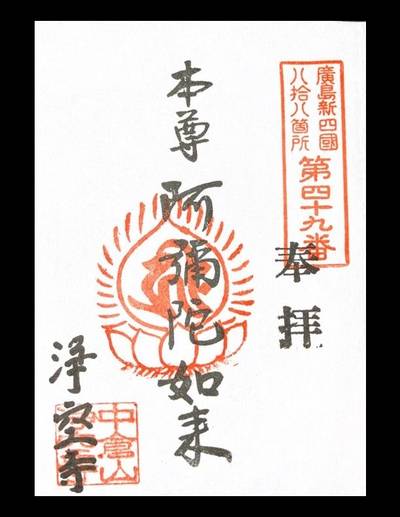 廣島新四國
八拾八箇所
第四十九番
奉拝
本尊 阿彌陀如来
浄空寺
中倉山